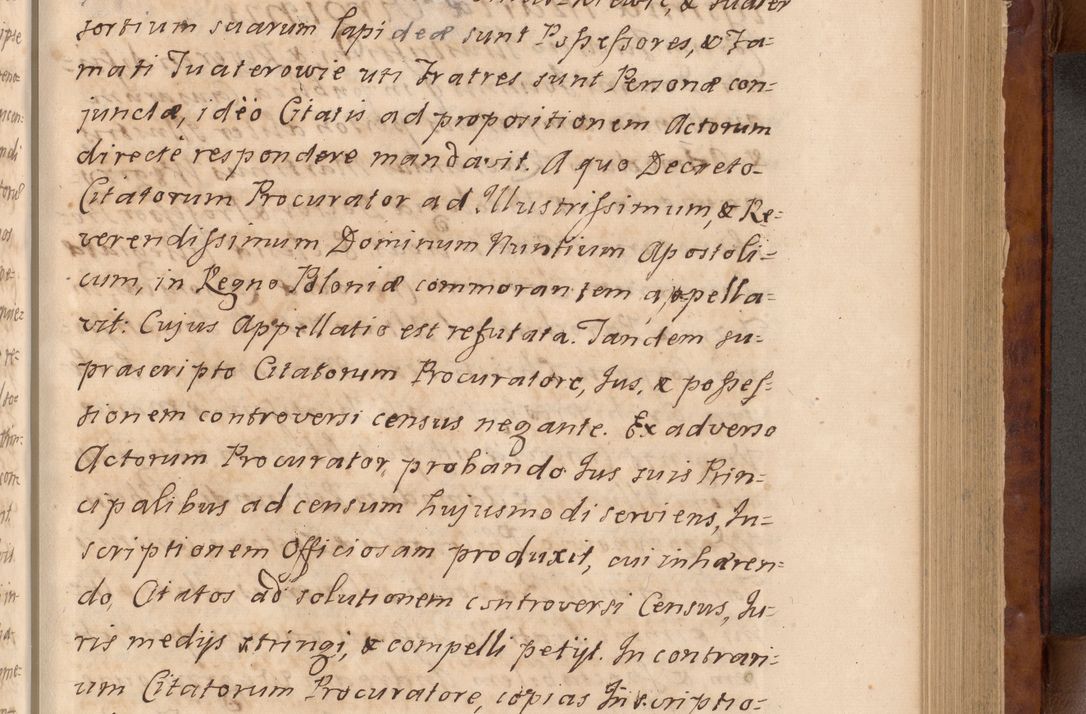 sortium suarum lapideæ sunt Possessores, & Fa-
mati Tuaterowie uti Fratres sunt Personæ con-
junctæ, ideò Citatis ad propositionem Actorum
directè respondere mandavit. A quo Decreto
Citatorum Procurator ad Illustrissimum, & Re-
verendissimum Dominum Nuntium Apostoli-
cum, in Regno Poloniæ commorantem appella-
vit: Cujus Appellatio est refutata. Tandem su-
prascripto Citatorum Procuratore, Jus, & posses-
sionem controversi census negante. Ex adverso
Actorum Procurator, probando Jus suis Prin-
cipalibus ad censum hujusmodi serviens, In-
scriptionem Officiosam produxit, cui inhæren-
do, Citatos ad solutionem controversi Census, Ju-
ris medijs stringi, & compelli petijt. In contrari-
um Citatorum Procuratore, copias Inscriptio-